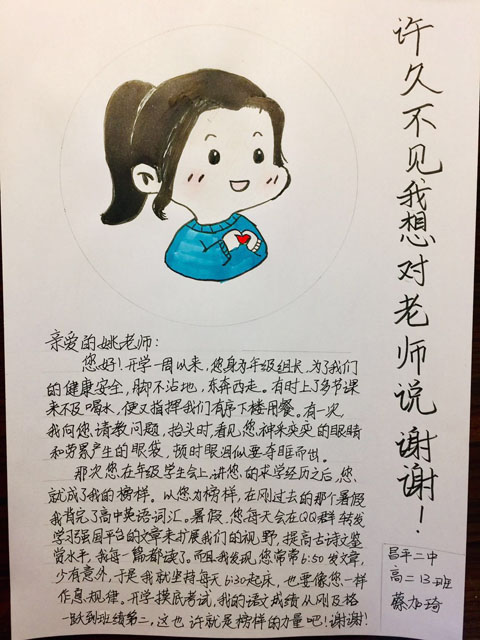 许久不见我想对老师说 谢谢！
亲爱的姚老师：
您好！开学一周以来，您身为年级组长，为了我们
的健康安全，脚不沾地，东奔西走。有时上了多节课
来不及喝水，便又指挥我们有序下楼用餐。有一次
我向您请教问题，抬头时，看见您神采奕奕的眼睛
和劳累产生的眼袋，顿时眼泪似要夺眶而出。
那次您在年级学生会上，讲您的求学经历之后，您
就成了我的榜样。以您为榜样，在刚过去的那个暑假
我背完了高中英语词汇。暑假，您每天会在QQ群转发
学习强国平台的文章来扩展我们的视野，提高古诗文鉴
赏水平，我每一篇都读了。而且我发现，您常常6:50发文章，
少有意外，于是我就坚持每天6:30起床，也要像您一样
作息规律。开学摸底考试，我的语文成绩从刚及格
一跃到班级第二，这也许就是榜样的力量吧！谢谢！
昌平二中
高二13班
蔡加琦